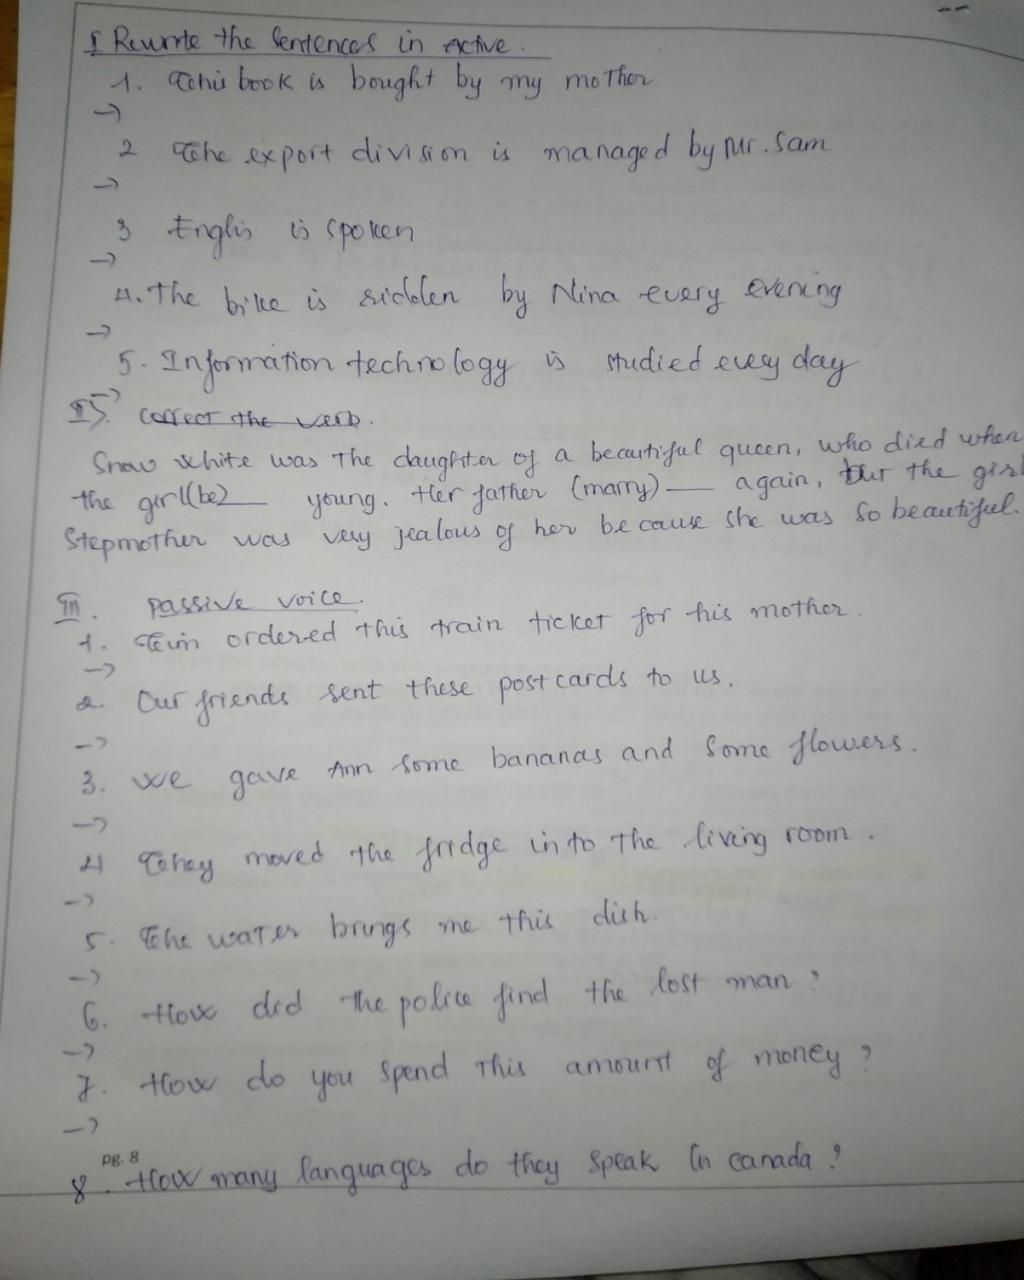 I Rewrite the sentences in active.
1. This book is bought by my mother
→
2 The export division is managed by Mr. Sam
→
3 Englis is spoken
→
4. The bike is ridden by Nina every evening
→
5. Information technology is studied every day
→
II. correct the verb.
Snow white was the daughter of a beautiful queen, who died when
the girl (be)___ young. Her father (marry)___ again, but the girl
Stepmother was very jealous of her because she was so beautiful.
III. passive voice.
1. Tim ordered this train ticket for his mother.
→
2. Our friends sent these postcards to us.
→
3. we gave Ann some bananas and some flowers.
→
4 They moved the fridge into the living room.
→
5. The water brings me this dish.
→
6. How did the police find the lost man?
→
7. How do you spend this amount of money?
→
PG. 8
8. How many languages do they speak in canada?